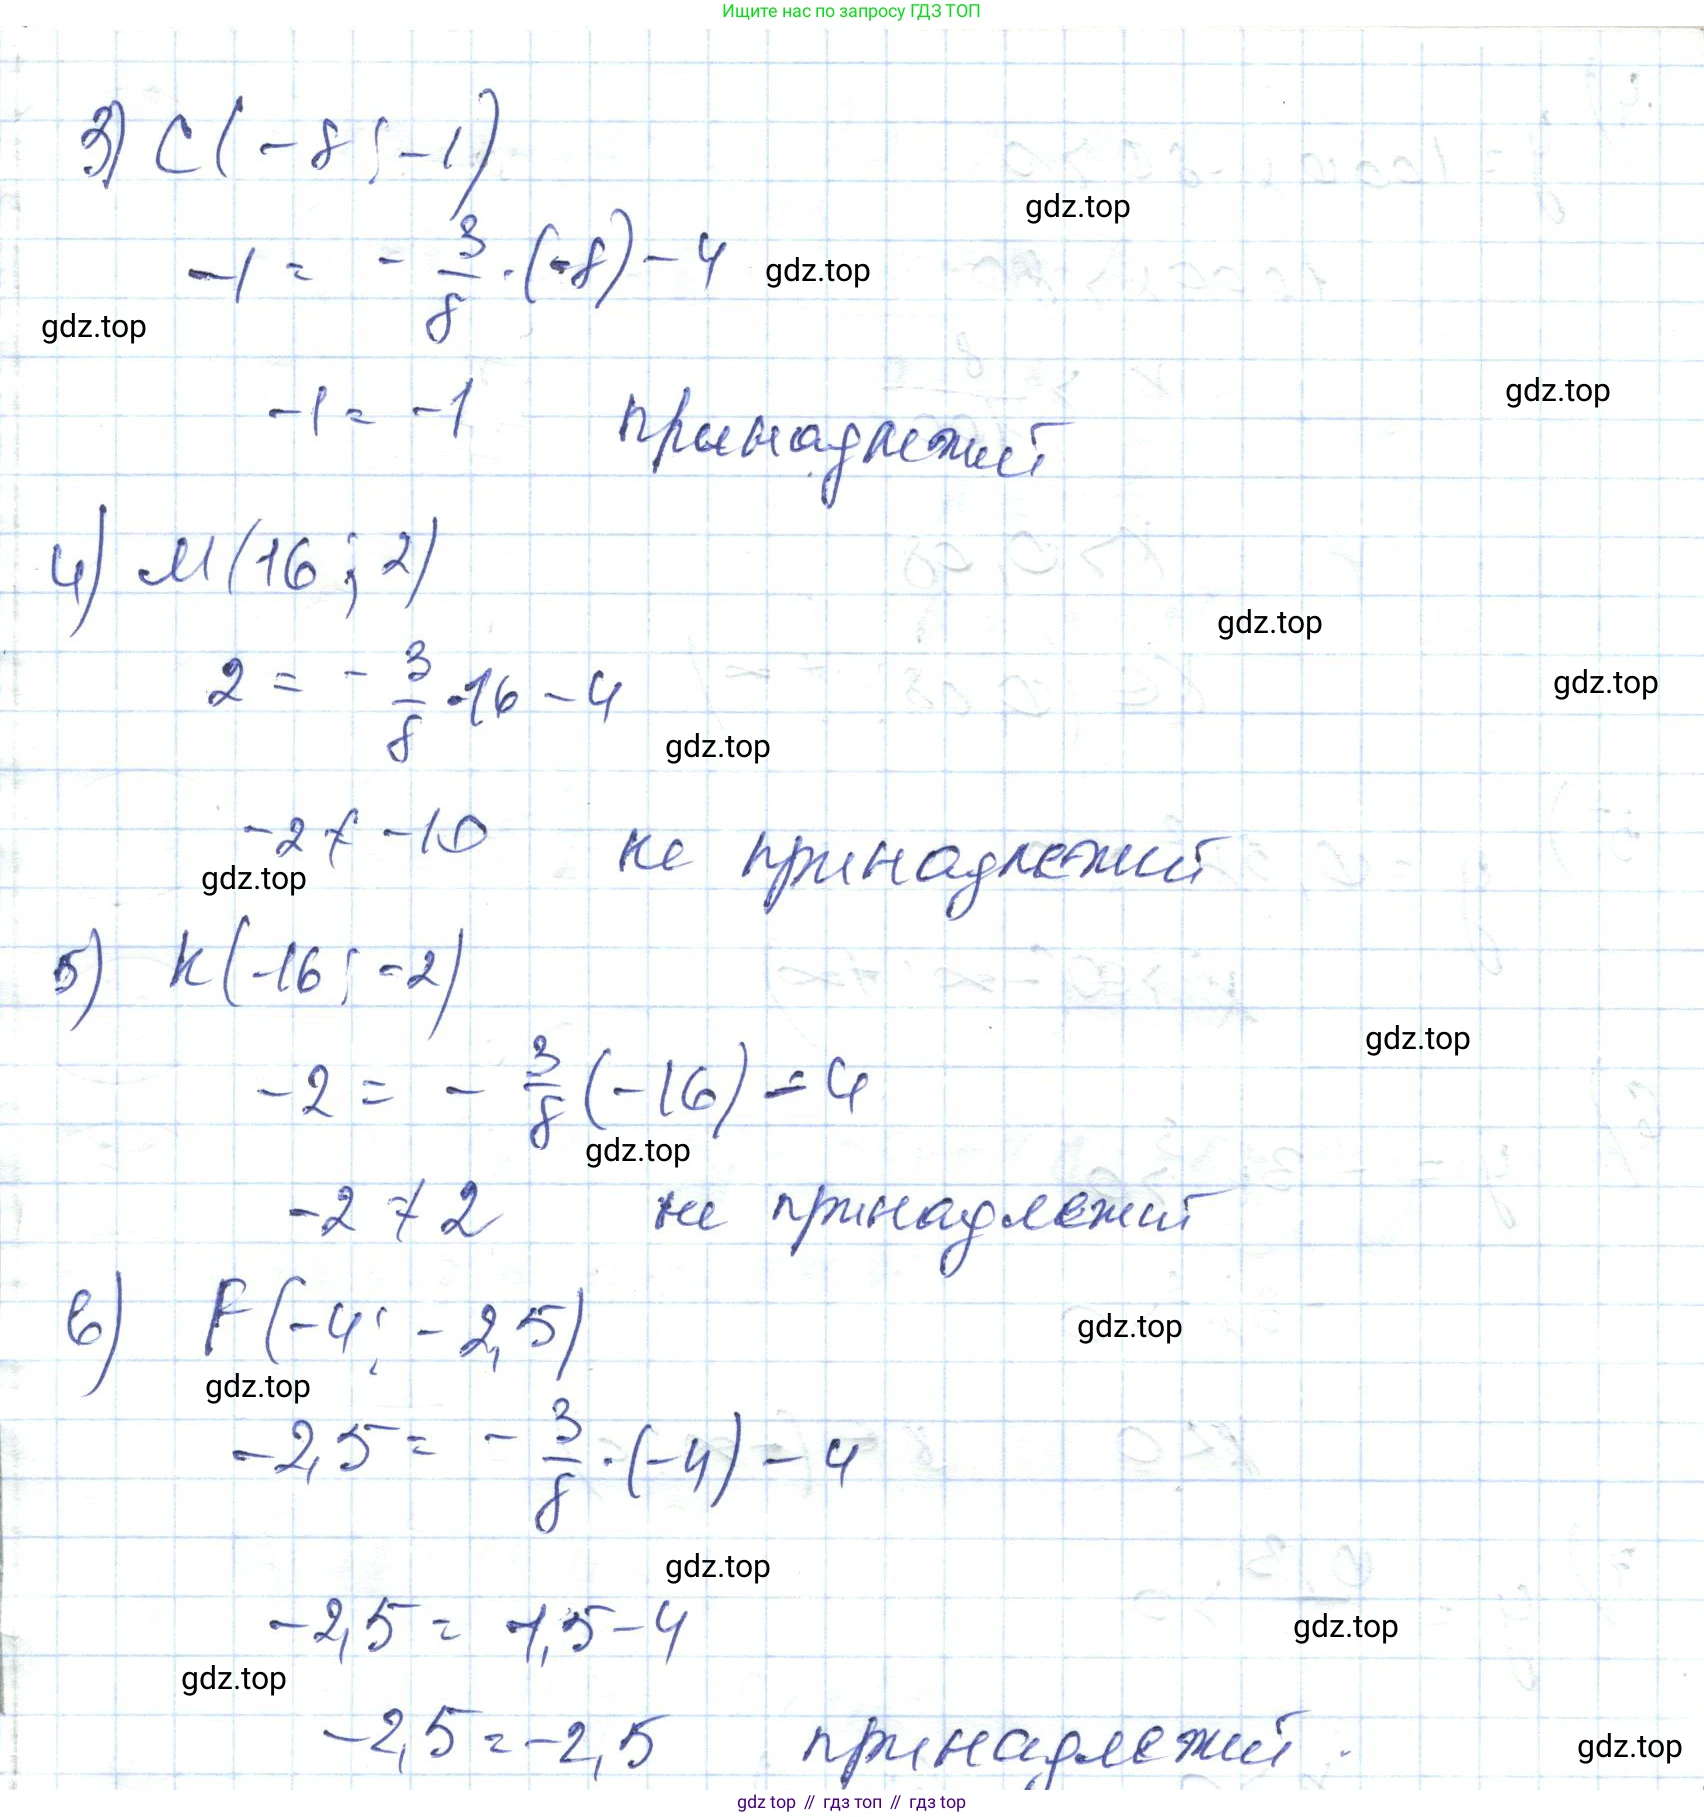 Ищите нас по запросу ГДЗ ТОП
3) C(-8; -1)
gdz.top
-1 = - 3/8 · (-8) - 4
gdz.top
gdz.top
gdz.top
-1 = -1 принадлежит
4) M(16; 2)
gdz.top
2 = - 3/8 · 16 - 4
gdz.top
gdz.top
-2 ≠ -10 не принадлежит
gdz.top
5) K(-16; -2)
gdz.top
-2 = - 3/8 (-16) - 4
gdz.top
-2 ≠ 2 не принадлежит
6) F(-4; -2,5)
gdz.top
gdz.top
-2,5 = - 3/8 · (-4) - 4
gdz.top
-2,5 = 1,5 - 4
gdz.top
gdz.top
-2,5 = -2,5 принадлежит.
gdz.top
gdz top // гдз топ // гдз top